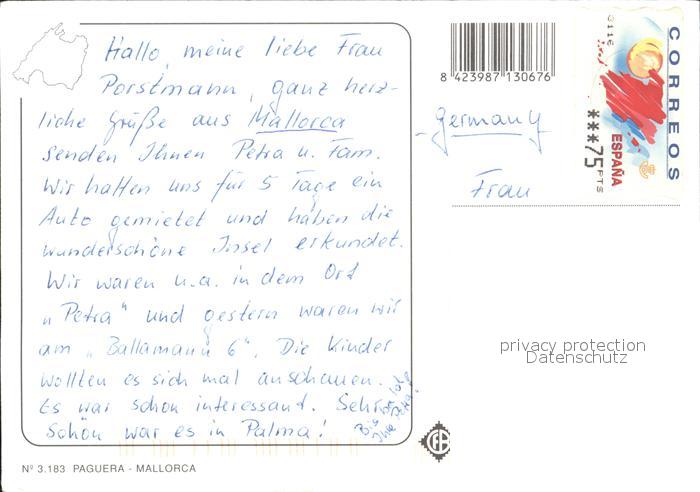 Hallo, meine liebe Frau
Porstmann, ganz herz-
liche Grüße aus Mallorca
senden Ihnen Petra u. Fam.
Wir hatten uns für 5 Tage ein
Auto gemietet und haben die
wunderschöne Insel erkundet.
Wir waren u.a. in dem Ort
„Petra“ und gestern waren wir
am „Ballamann 6“. Die Kinder
wollten es sich mal anschauen.
Es war schon interessant. Sehr
schön war es in Palma!
Bis
Ihre Petra!
Nº 3.183 PAGUERA - MALLORCA
8 423987 130676
-Germany
Frau
CORREOS
ESPAÑA
***75 PTS
privacy protection
Datenschutz